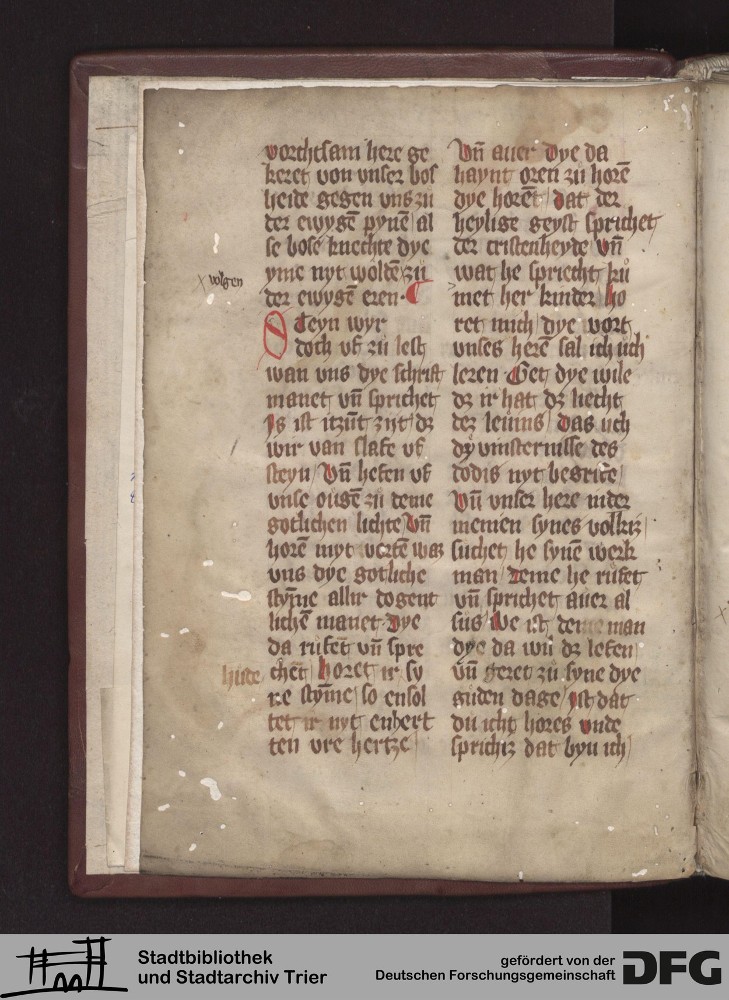 vorchtsam here ge
keret von vnser bos
heide gegen vns zü
der ewygē pynē al
se bose knechte dye
yme nyt woldē zü
volgen
der ewygē eren
Steyn wyr
doch vf zü lest
wan vns dye schrift
manet vn̄ sprichet
Is ist itzūt zyt dz
wir van slafe vf
steyn Vn̄ hefen vf
vnse ougē zü deme
gotlichen lichte Vn̄
horē myt vortē waz
vns dye gotliche
stȳme allir dogent
lichē manet Dye
da rufēt vn̄ spre
hude
chēt Horet ir sy
ne stȳme so ensol
tet ir nyt enhert
ten vre hertze
Vn̄ auer dye da
haynt oren zü horē
dye horēt dat der
heylige geyst sprichet
der cristenheyde vn̄
wat he spricht kü
met her kinder ho
ret mich dye vort
vnses herē sal ich uch
leren Get dye wile
dz ir hat dz liecht
dez leuuīs das uch
dy vinsternisse des
dodis nyt begrife
Vn̄ vnser here nider
menien synes volkiz
suchet he synē werk
man deme he rüfet
vn̄ sprichet auer al
sus We ist deme man
dye da wil dz lefen
vn̄ geret zü syne dye
güden dage Ist dat
du icht hores vnde
sprichiz dat byn ich
Stadtbibliothek
und Stadtarchiv Trier
gefördert von der
Deutschen Forschungsgemeinschaft
DFG